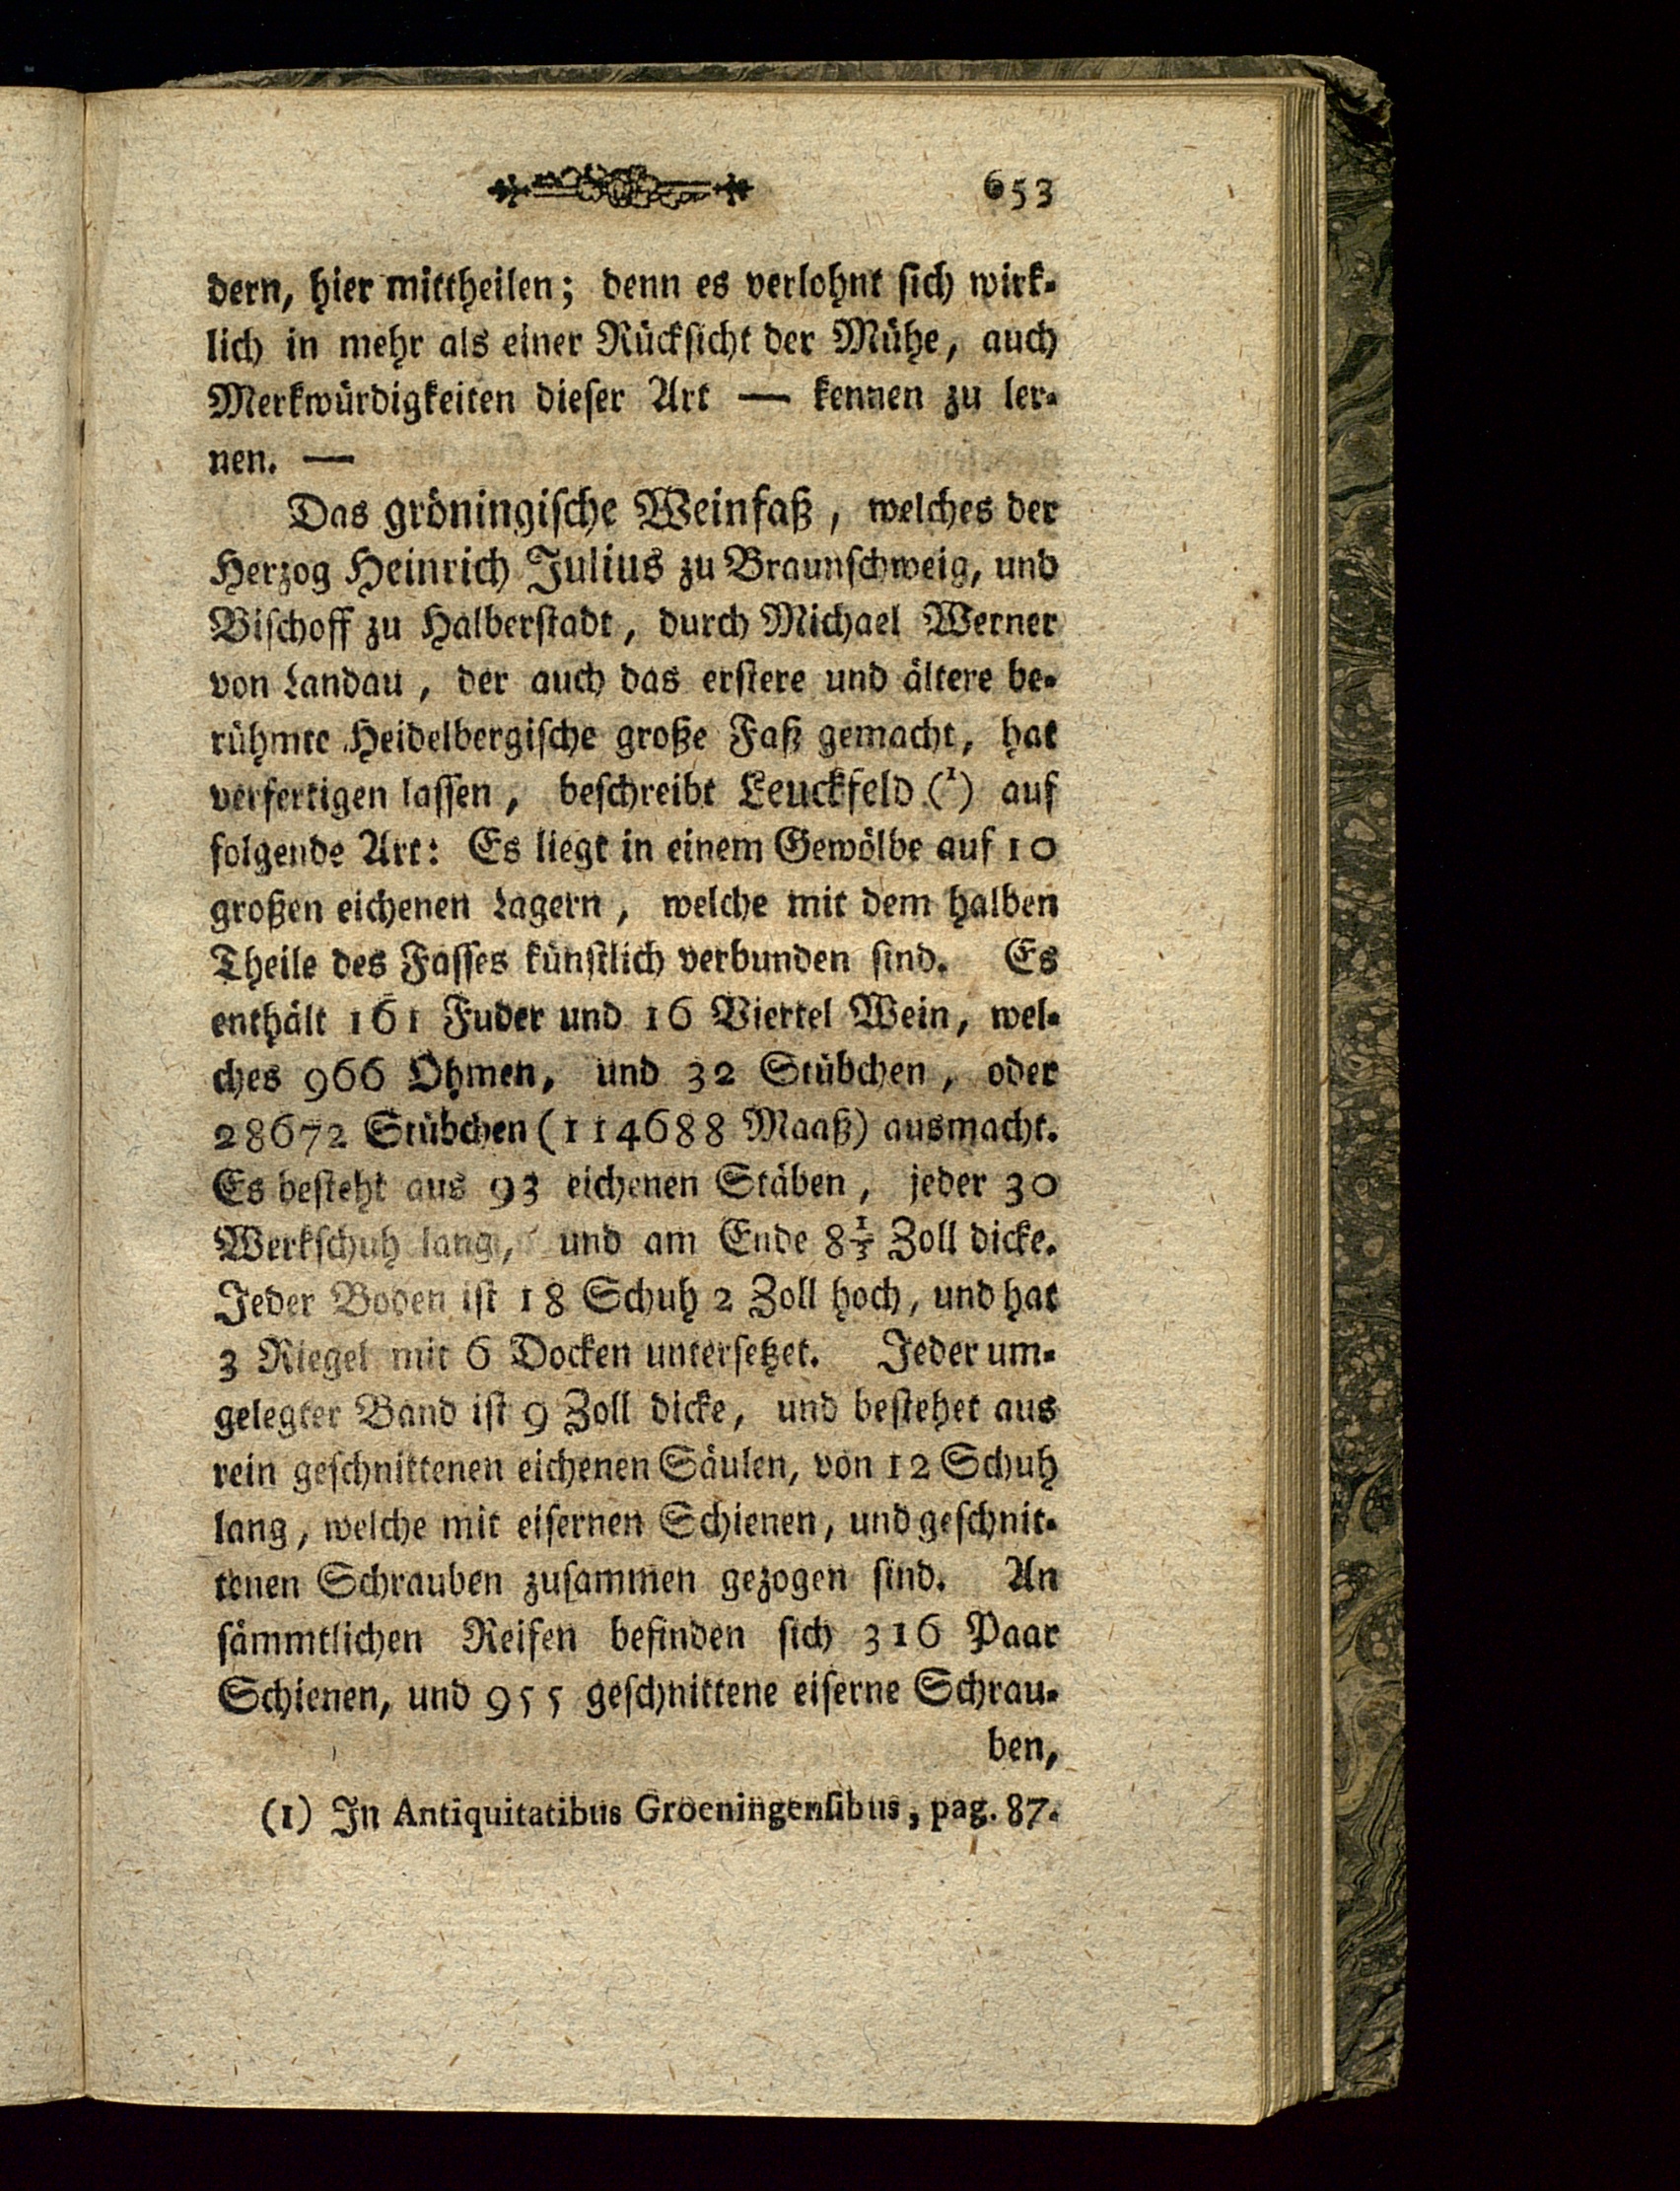 653
dern, hier mittheilen; denn es verlohnt sich wirk-
lich in mehr als einer Rücksicht der Mühe, auch
Merkwürdigkeiten dieser Art — kennen zu ler-
nen. —
Das gröningische Weinfaß, welches der
Herzog Heinrich Julius zu Braunschweig, und
Bischoff zu Halberstadt, durch Michael Werner
von Landau, der auch das erstere und ältere be-
rühmte Heidelbergische große Faß gemacht, hat
verfertigen lassen, beschreibt Leuckfeld (1) auf
folgende Art: Es liegt in einem Gewölbe auf 10
großen eichenen Lagern, welche mit dem halben
Theile des Fasses künstlich verbunden sind. Es
enthält 161 Fuder und 16 Viertel Wein, wel-
ches 966 Ohmen, und 32 Stübchen, oder
28672 Stübchen (114688 Maaß) ausmacht.
Es besteht aus 93 eichenen Stäben, jeder 30
Werkschuh lang, und am Ende 8⅓ Zoll dicke.
Jeder Boden ist 18 Schuh 2 Zoll hoch, und hat
3 Riegel mit 6 Docken untersetzet. Jeder um-
gelegter Band ist 9 Zoll dicke, und bestehet aus
rein geschnittenen eichenen Säulen, von 12 Schuh
lang, welche mit eisernen Schienen, und geschnit-
tenen Schrauben zusammen gezogen sind. An
sämmtlichen Reifen befinden sich 316 Paar
Schienen, und 955 geschnittene eiserne Schrau-
ben,
(1) In Antiquitatibus Groeningensibus, pag. 87.